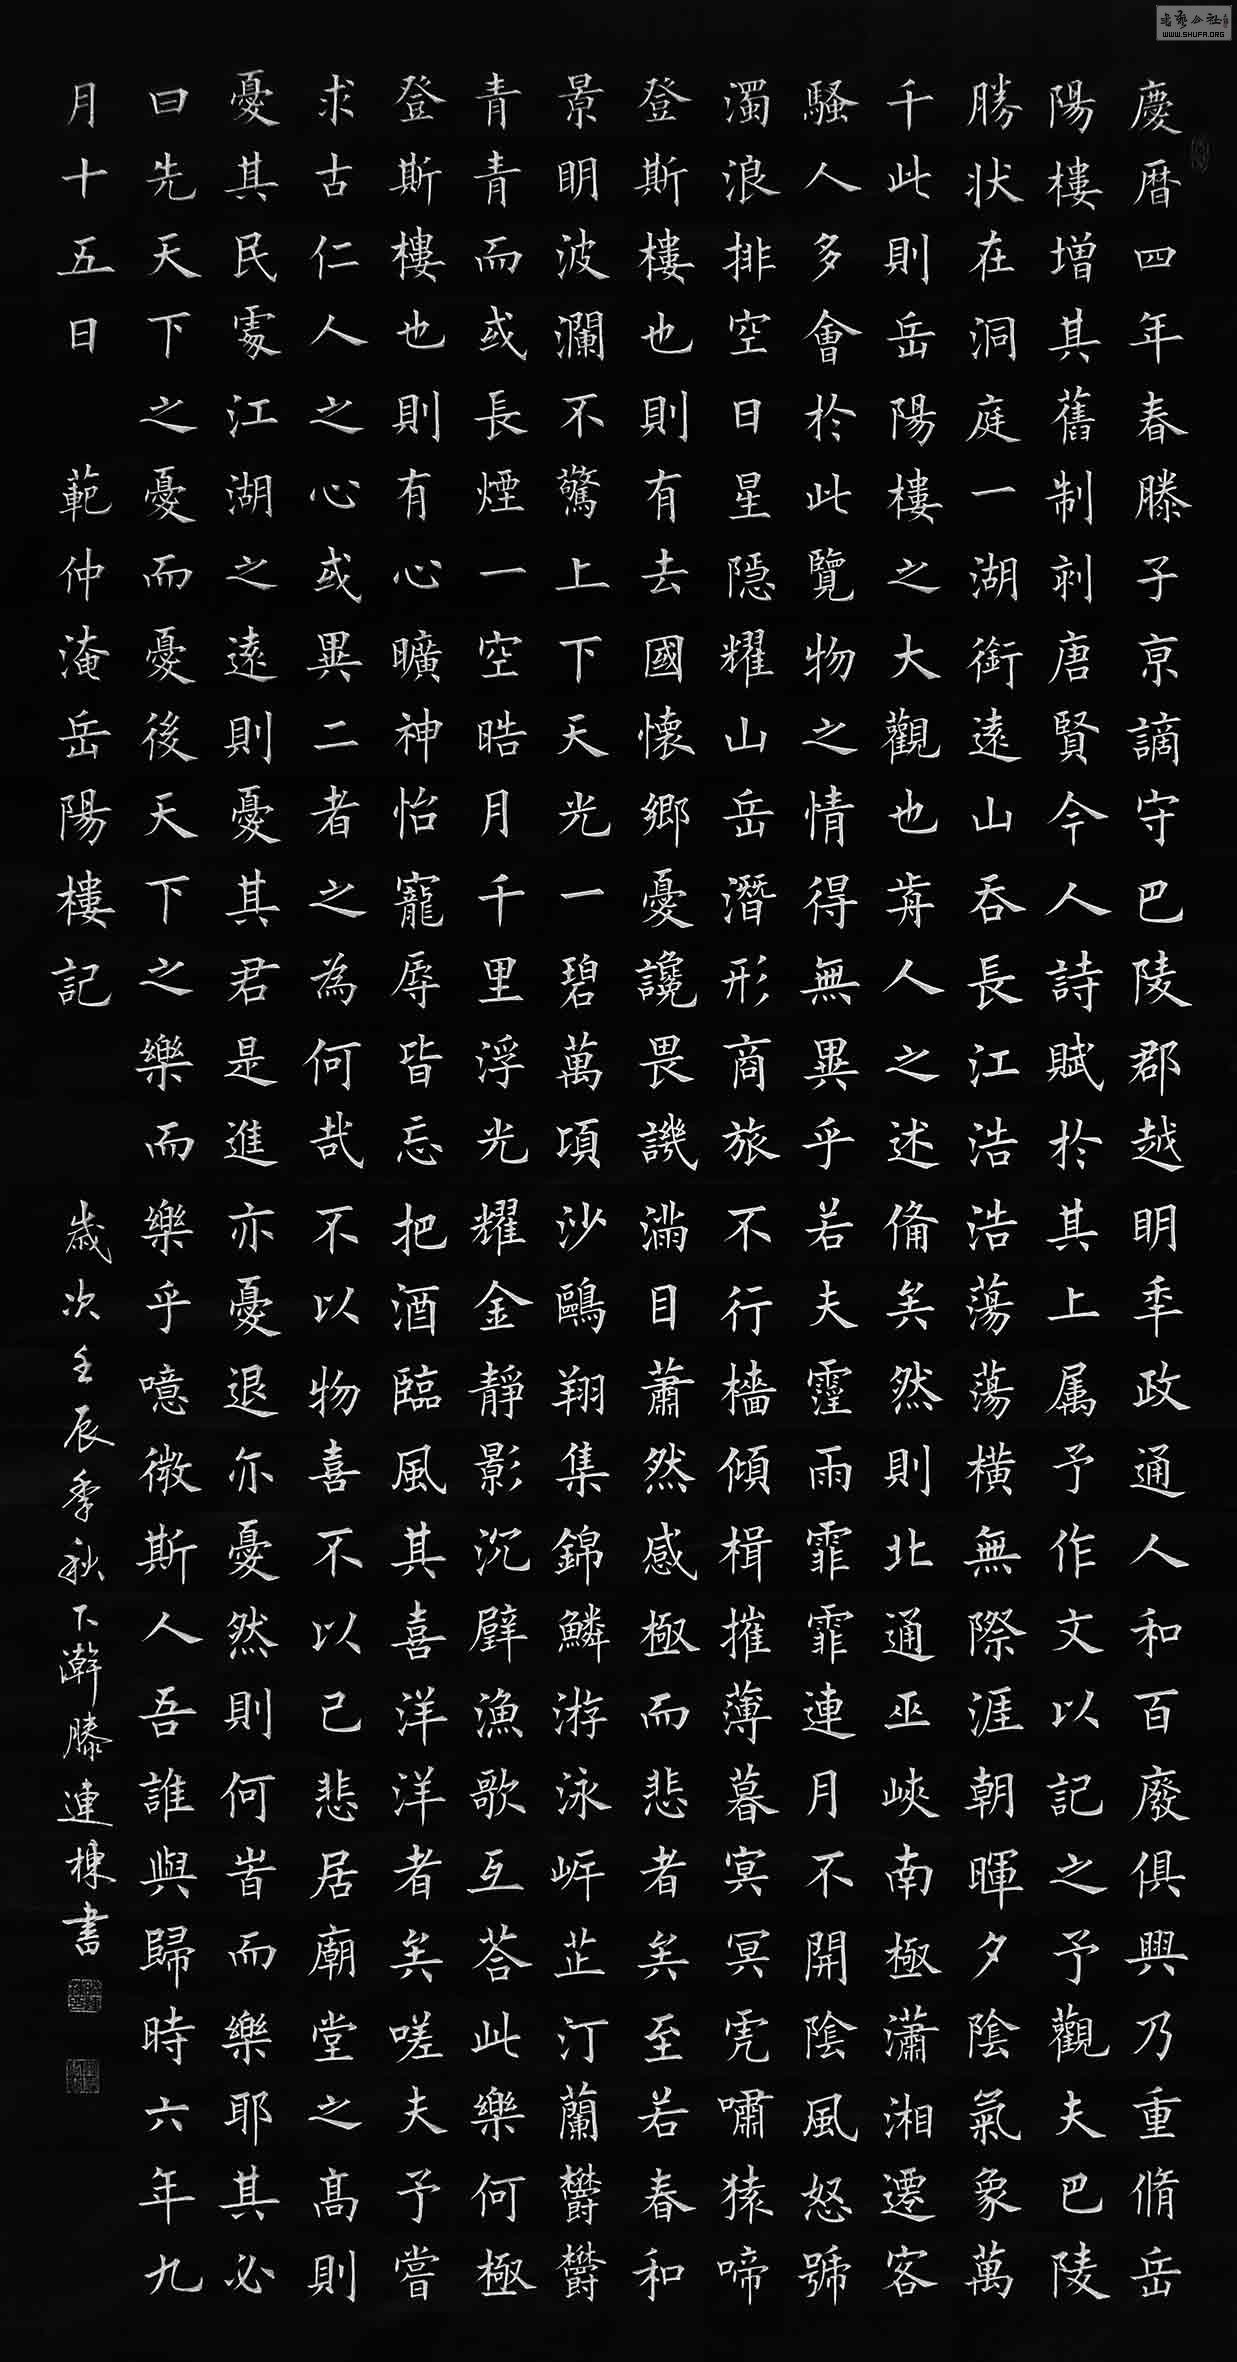 慶暦四年春滕子亰謫守巴陵郡越明秊政通人和百廢俱興乃重脩岳
陽樓增其舊制刻唐賢今人詩賦於其上属予作文以記之予觀夫巴陵
勝狀在洞庭一湖銜遠山吞長江浩浩蕩蕩橫無際涯朝暉夕陰氣象萬
千此則岳陽樓之大觀也歬人之述俻矣然則北通巫峽南極瀟湘遷客
騷人多會於此覽物之情得無異乎若夫霪雨霏霏連月不開陰風怒號
濁浪排空日星隱耀山岳潛形商旅不行檣傾楫摧薄暮冥冥虎嘯猿啼
登斯樓也則有去國懷鄉憂讒畏譏滿目蕭然感極而悲者矣至若春和
景明波瀾不驚上下天光一碧萬頃沙鷗翔集錦鱗游泳岸芷汀蘭欝欝
青青而或長煙一空晧月千里浮光耀金靜影沉璧漁歌互荅此樂何極
登斯樓也則有心曠神怡寵辱皆忘把酒臨風其喜洋洋者矣嗟夫予嘗
求古仁人之心或異二者之為何哉不以物喜不以己悲居廟堂之高則
憂其民處江湖之遠則憂其君是進亦憂退亦憂然則何旹而樂耶其必
曰先天下之憂而憂後天下之樂而樂乎噫微斯人吾誰與歸時六年九
月十五日 範仲淹岳陽樓記 歲次壬辰季秋下澣滕連棟書
書藝公社
WWW.SHUFA.ORG